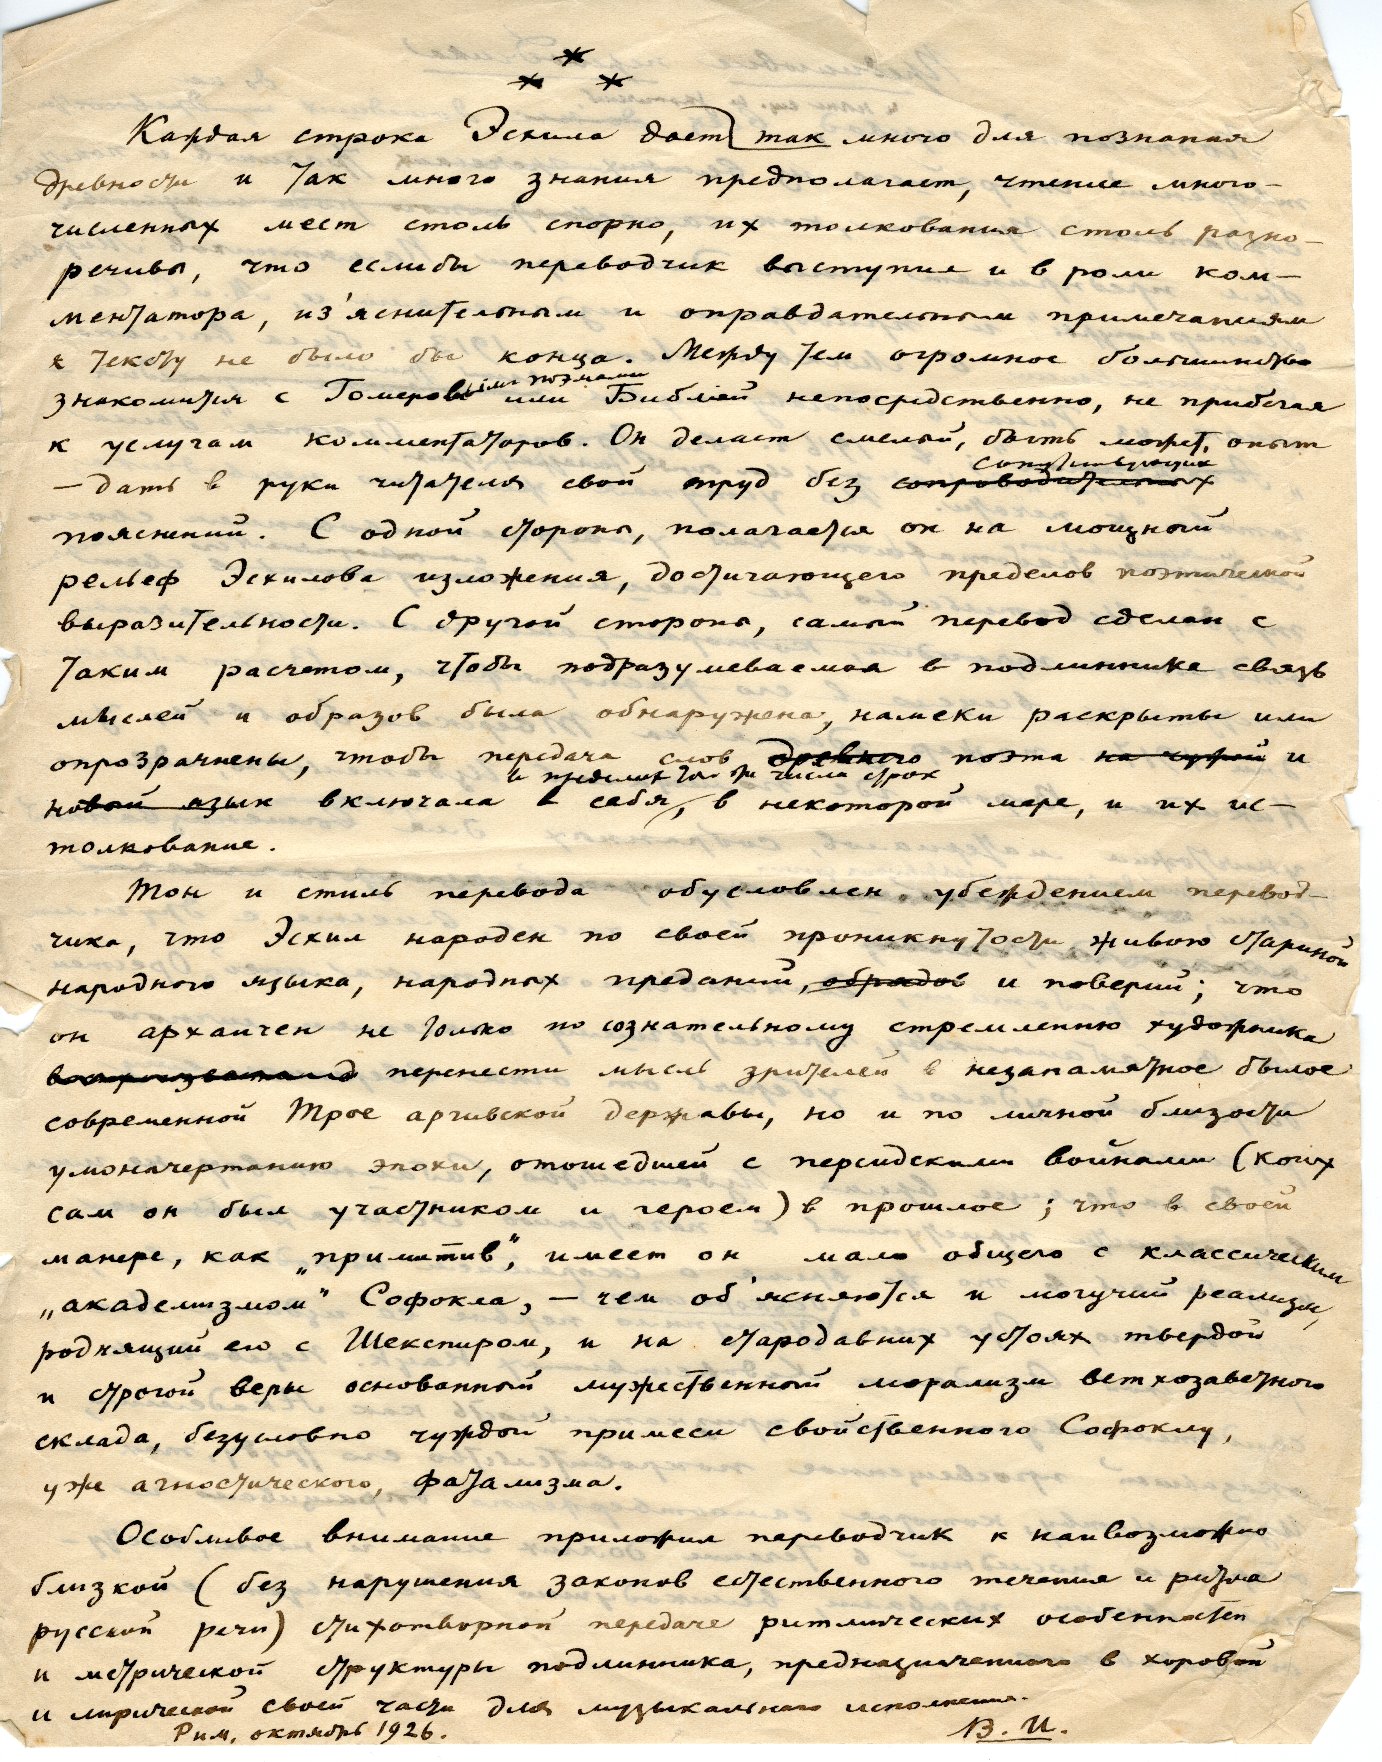 *
* *
Каждая строка Эсхила дает так много для познания
древности и так много знания предполагает, чтение много-
численных мест столь спорно, их толкования столь разно-
речивы, что еслибы переводчик выступил и в роли ком-
ментатора, из'яснительным и оправдательным примечаниям
к тексту не было бы конца. Между тем огромное большинство
знакомится с Гомеровыми поэмами или Библией непосредственно, не прибегая
к услугам комментаторов. Он делает смелый, быть может, опыт
— дать в руки читателя свой труд без сопроводительных
сопутствующих
пояснений. С одной стороны, полагается он на мощный
рельеф Эсхилова изложения, достигающего пределов поэтической
выразительности. С другой стороны, самый перевод сделан с
таким расчетом, чтобы подразумеваемая в подлиннике связь
мыслей и образов была обнаружена, намеки раскрыты или
опрозрачнены, чтобы передача слов древнего поэта на чужой и
в пределах того же числа строк
новый язык включала в себя, в некоторой мере, и их ис-
толкование.
Тон и стиль перевода обусловлен убеждением перевод-
чика, что Эсхил народен по своей проникнутости живою стариной
народного языка, народных преданий, обрядов и поверий; что
он архаичен не только по сознательному стремлению художника
перенести мысль зрителей в незапамятное былое
современной Трое аргивской державы, но и по личной близости
умоначертанию эпохи, отошедшей с персидскими войнами (коих
сам он был участником и героем) в прошлое; что в своей
манере, как „примитив“, имеет он мало общего с классическим
„академизмом“ Софокла, — чем об'ясняются и могучий реализм,
роднящий его с Шекспиром, и на стародавних устоях твердой
и строгой веры основанный мужественный морализм ветхозаветного
склада, безусловно чуждой примеси свойственного Софоклу,
уже агностического, фатализма.
Особливое внимание приложил переводчик к наивозможно
близкой (без нарушения законов естественного течения и ритма
русской речи) стихотворной передаче ритмических особенностей
и метрической структуры подлинника, предназначенного в хоровой
и лирической своей части для музыкального исполнения.
Рим, октябрь 1926.
В. И.